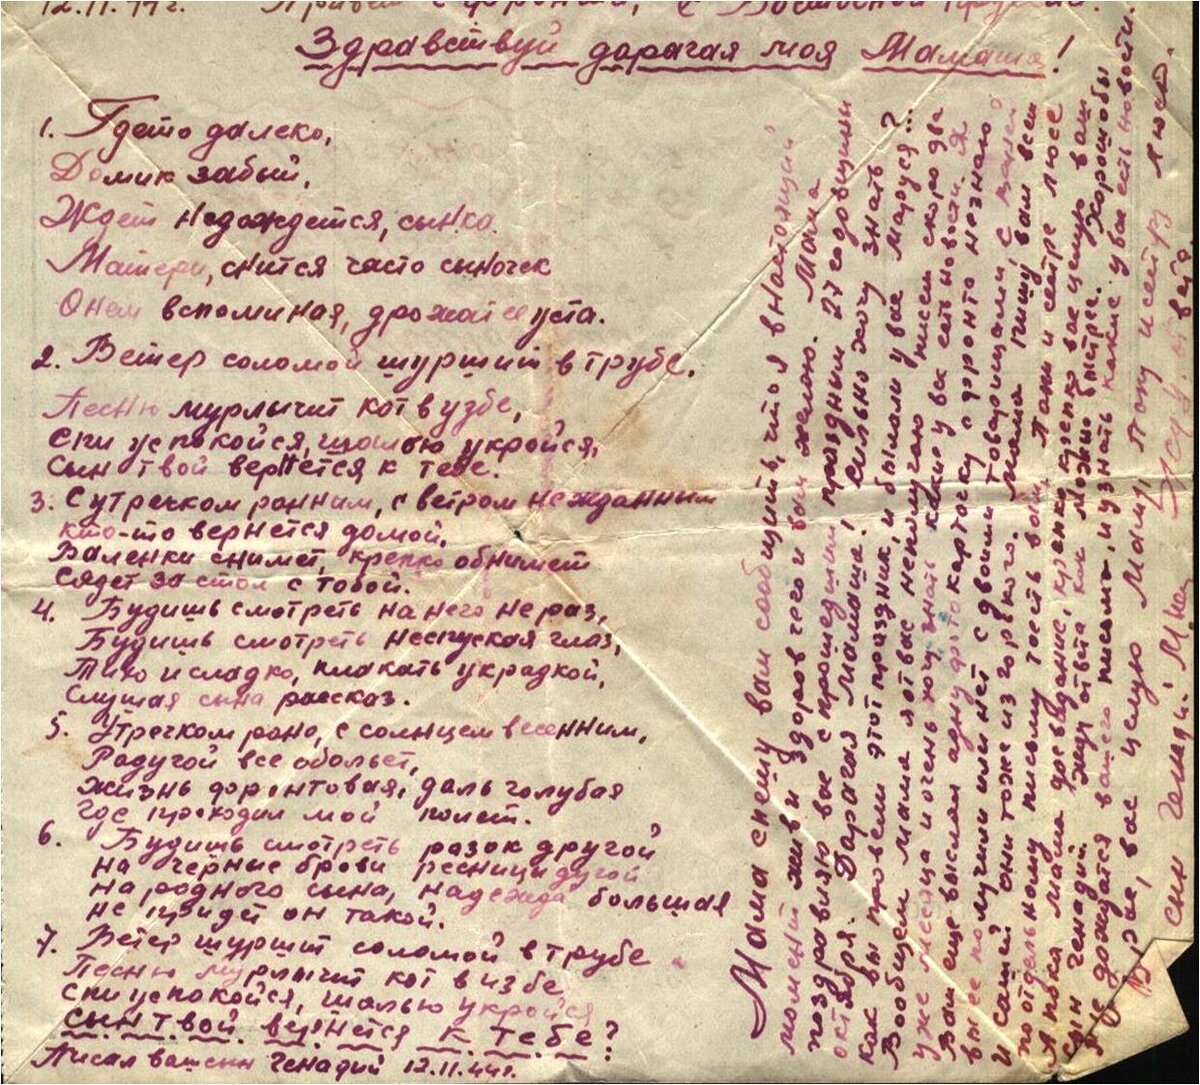 12.11.44г. Привет с фронта, с Восточной Пруссии.
Здравствуй дарагая моя Мамаша!
1. Гдето далеко,
Домик забый,
Ждет недождется, сынка.
Матери, снится часто сыночек
Онем вспоминая, дрожат ее уста.
2. Ветер соломой шуршит в трубе,
Песню мурлычит кот в узбе,
Спи успокойся, шалью укройся,
Сын твой вернется к тебе.
3. С утречком ранним, с ветром нежданным
кто-то вернется домой,
Валенки снимет, крепко обнимет
Сядет за стол с тобой.
4. Будишь смотреть на него не раз,
Будишь смотреть неспуская глаз,
Тихо и сладко, плакать украдкой,
Слушая сына рассказ.
5. Утречком рано, с солнцем весенним,
Радугой все обольет,
Жизнь фронтовая, даль голубая
Где проходил мой полет.
6. Будишь смотреть разок другой
на черные брови ресницы дугой
на родного сына, надежда большая
не прийдет он такой.
7. Ветер шуршит соломой в трубе
Песню мурлычит кот в избе
Спи успокойся, шалью укройся
сын твой вернется к тебе?
Писал ваш сын Генадий 12.11.44г.
Мама спешу вам сообщить, что я в настоящий
момент жив и здоров чего и вам желаю. Мама
поздравляю вас с прошедшим праздным 27 годовщины
октября. Дарагая мамаша, сильно хочу знать
как вы провели этот праздник, и была ли у вас Маруся?...
Вообщем мама я от вас неполучаю писем скоро два
уже месяца и очень хочу знать какие у вас есть новости. Я
Вам еще выслал одну фото карточку с фронта незнаю
вы ее получили или нет с двоими товарищами, с нашей
и сашей они тоже из горького. Мама пишу вам всем
по отдельному письму тость вам, Пани и сетре люсе
А пока мама досведание, крепко крепко вас целую ваш
сын генадий жду ответа как можно быстрее. Хорошобы
не дождатся вашего письма, и узнать какие у вас есть новости.
Еще раз, вас целую Маму Пану и сетру люсю.
Ваш сын генадий.